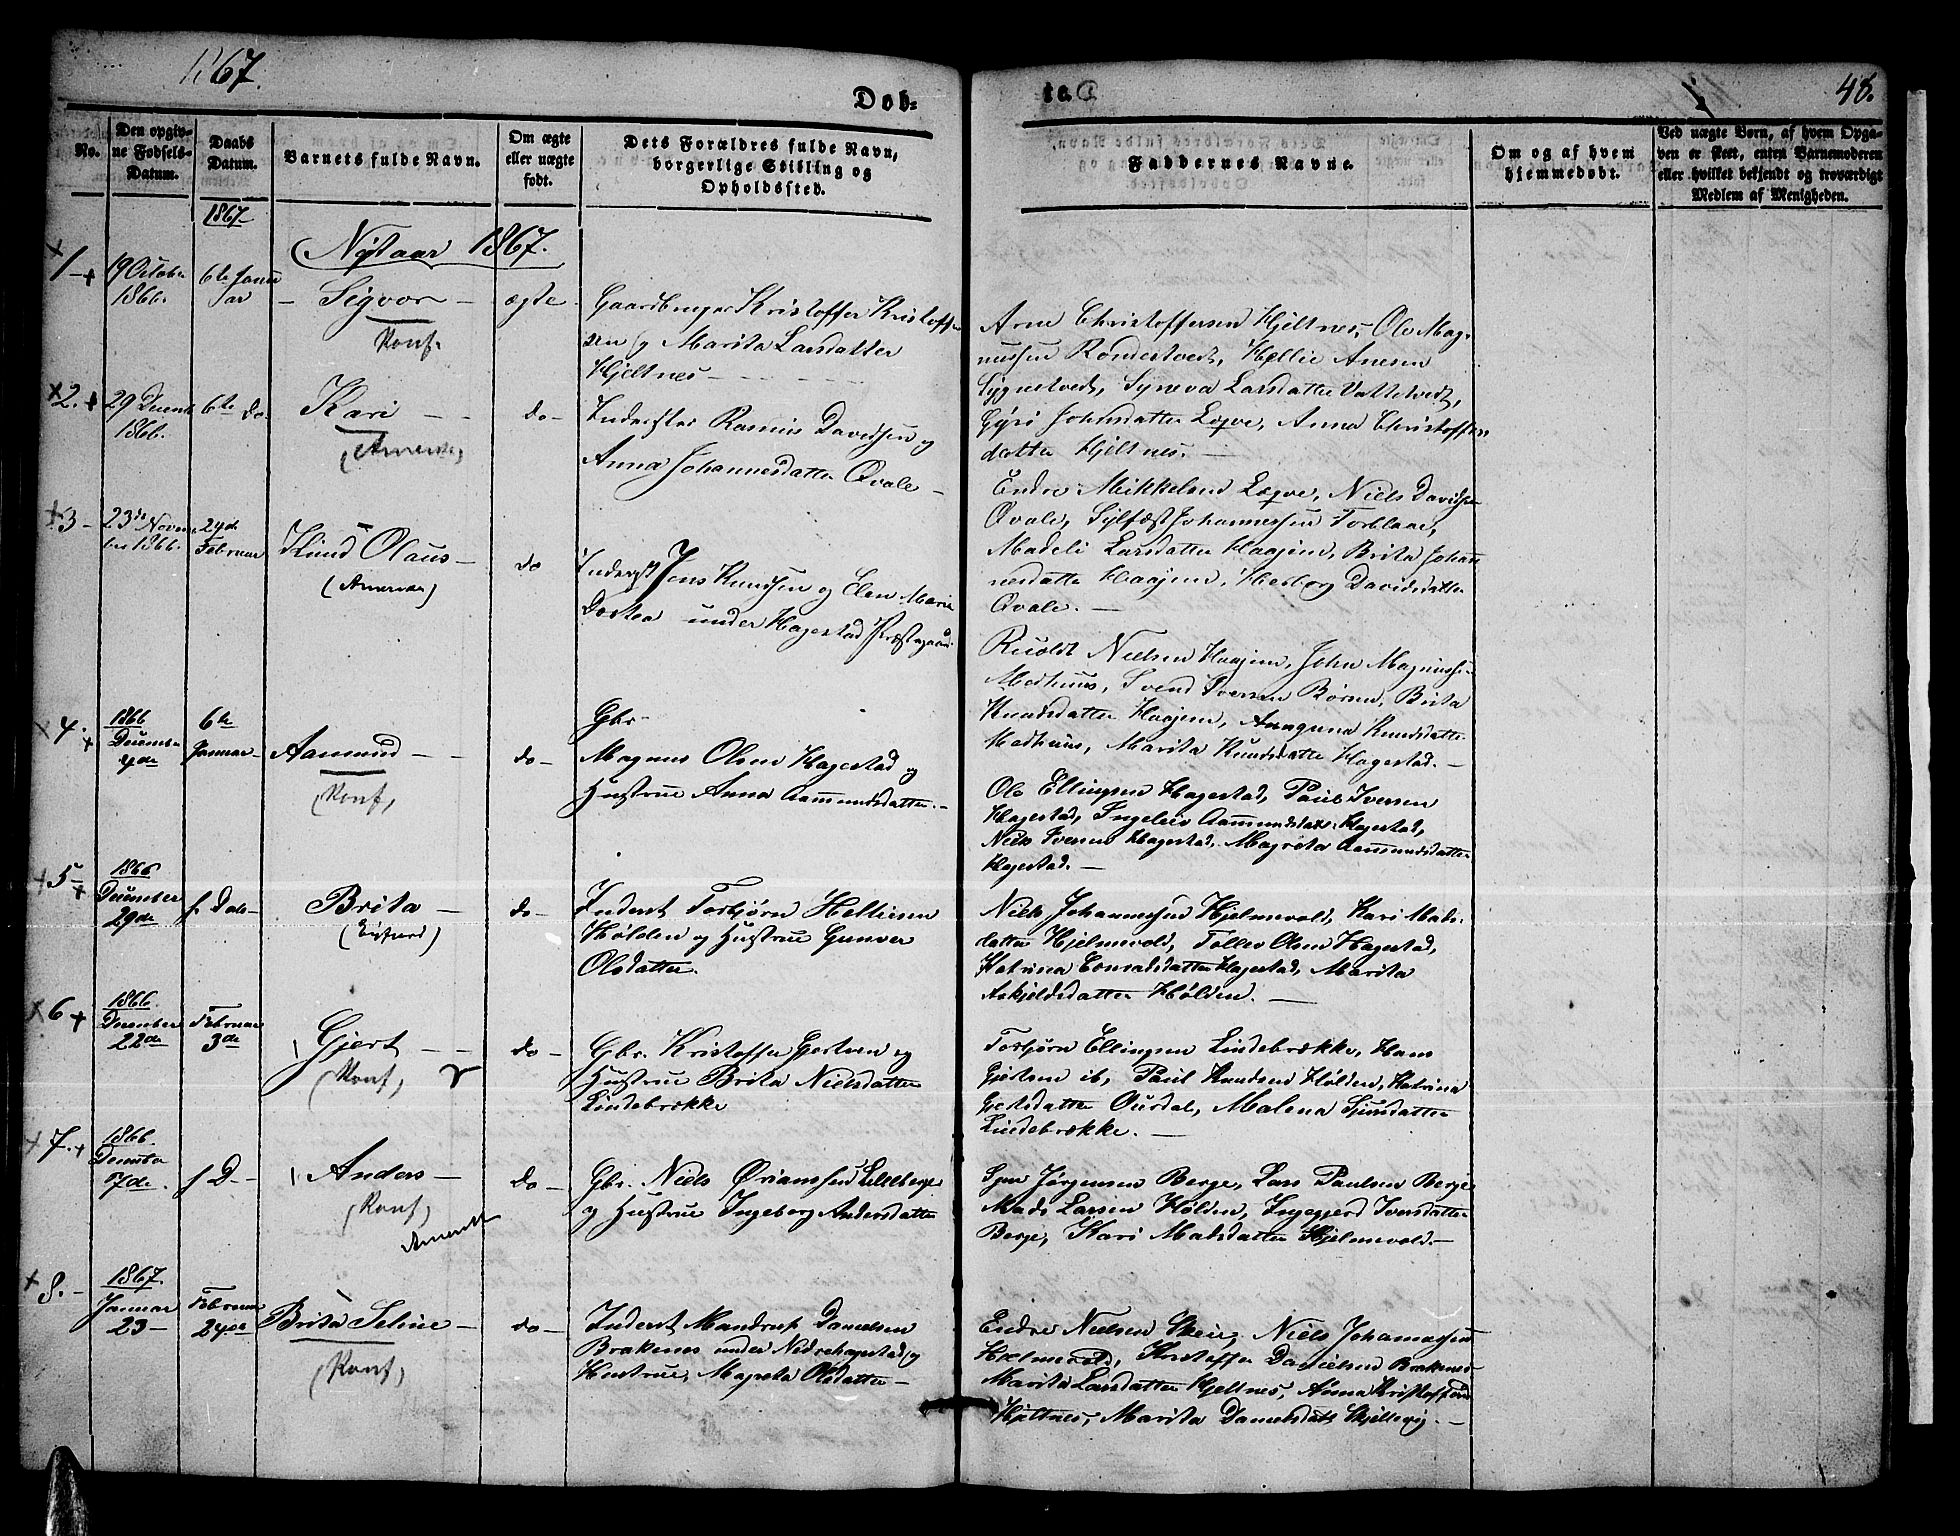 1867.
Døb=
te.
48.
No.
Den opgiv-
ne Fødsels-
Datum.
Daabs
Datum.
Barnets fulde Navn.
Om ægte
eller uægte
født.
Dets Forældres fulde Navn,
borgerlige Stilling og
Opholdssted.
Faddernes Navne.
Om og af hvem
hjemmedøbt.
Ved uægte Børn, af hvem Opga-
ven er skeet, enten Barnemoderen
eller hvilket bekjendt og troværdigt
Medlem af Menigheden.
1867
Nytaar 1867.
1
19 Octobr
1866.
6te Janu
ar
Sigvor
Konf.
ægte
Gaardbruger Kristoffer Kristoffer
sen og Marita Larsdatter
Hjeltnes
Arne Christoffersen Hjeltnes, Ole Mag-
nussen Røndestvedt, Hellie Anesen
Sygnestvedt, Syneva Larsdatter Vattetvedt,
Gyri Johnsdatter Legve, Anna Christoffers
datter Hjeltnes.
2.
29 Decemb
1866.
6te do
Kari
(Amerika)
do
Inderster Rasmus Davidsen og
Anna Johannesdatter Qvale
Endre Mikkelsen Legve, Niels Davidsen
Qvale, Sylfæst Johannessen Torblaae,
Madeli Larsdatter Haajem, Brita Johan
nesdatter Haajem, Herborg Davidsdatter
Qvale.
3
23de Novem
ber 1866.
24de
Februar
Knud Olaus
(Amerika)
do
Inderst Jens Knudsen og Elen Marie
Dortea under Hagestad Præstegaard
Nielsen Haajem, John Magnussen
Medhuus, Svend Iversen Røren, Brita
Knudsdatter Haajem, Anaguna Knudsdatter
Medhuus, Marita Knudsdatter Hagestad.
4.
1866
Decembr
4de
6te
Januar
Aamund
(Konf)
do
Gbr.
Magnus Olsen Hagestad og
Hustrue Anna Aamundsdatter.
Ole Ellingsen Hagestad, Paul Iversen
Hagestad, Ingeleiv Aamundsdatr Hagestad,
Niels Iversen Hagestad, Magreta Aamundsdatter
Hagestad.
5
1866
December
29de
s. Dato
Brita
(Eisfjord)
do
Inderst Torbjørn Helliesen
Hølden og Hustrue Gunver
Olsdatter.
Niels Johannessen Hjelmevold, Kari Mads-
datter Hjelmevold, Tollev Olsen Hagestad,
Katrina Conradsdatter Hagestad, Marita
Askjeldsdatter Hølden.
6
1866
December
22de
Februar
3de
Gjert
(Konf)
do
Gbr. Kristoffer Gjertsen og
Hustrue Brita Nielsdatter
Lindebrække
Torbjørn Ellingsen Lindebrække, Hans
Gjertsen ib, Paul Knudsen Hølden, Katrina
Gjertsdatter Ousdal, Malena Sjursdatter
Lindebrække.
7.
1866
Decembr
7de
s. D
Anders
(Konf)
Amerik
do
Gbr. Niels Ørianssen Lekleberge
og Hustrue Ingeborg Andersdatter
Sjur Jørgensen Berge, Lars Paulsen Berge
Mads Larsen Hølden, Ingegjerd Iversdatter
Berge, Kari Madsdatter Hjelmevold.
8.
1867.
Januar
23
Februar
24de
Brita Seline
(Konf)
do
Inderst Mandrup Danielsen
Brakenes under Nedrehagestad og
Hustrue, Magreta Olsdatter
Endre Nielsen Skeie, Niels Johannessen
Hielmevold, Kristoffer Danielsen Brakenes
Marita Larsdatter Hjeltnes, Anna Kristoffersd
Hjeltnes, Marita Danielsdatr Skjellevig.